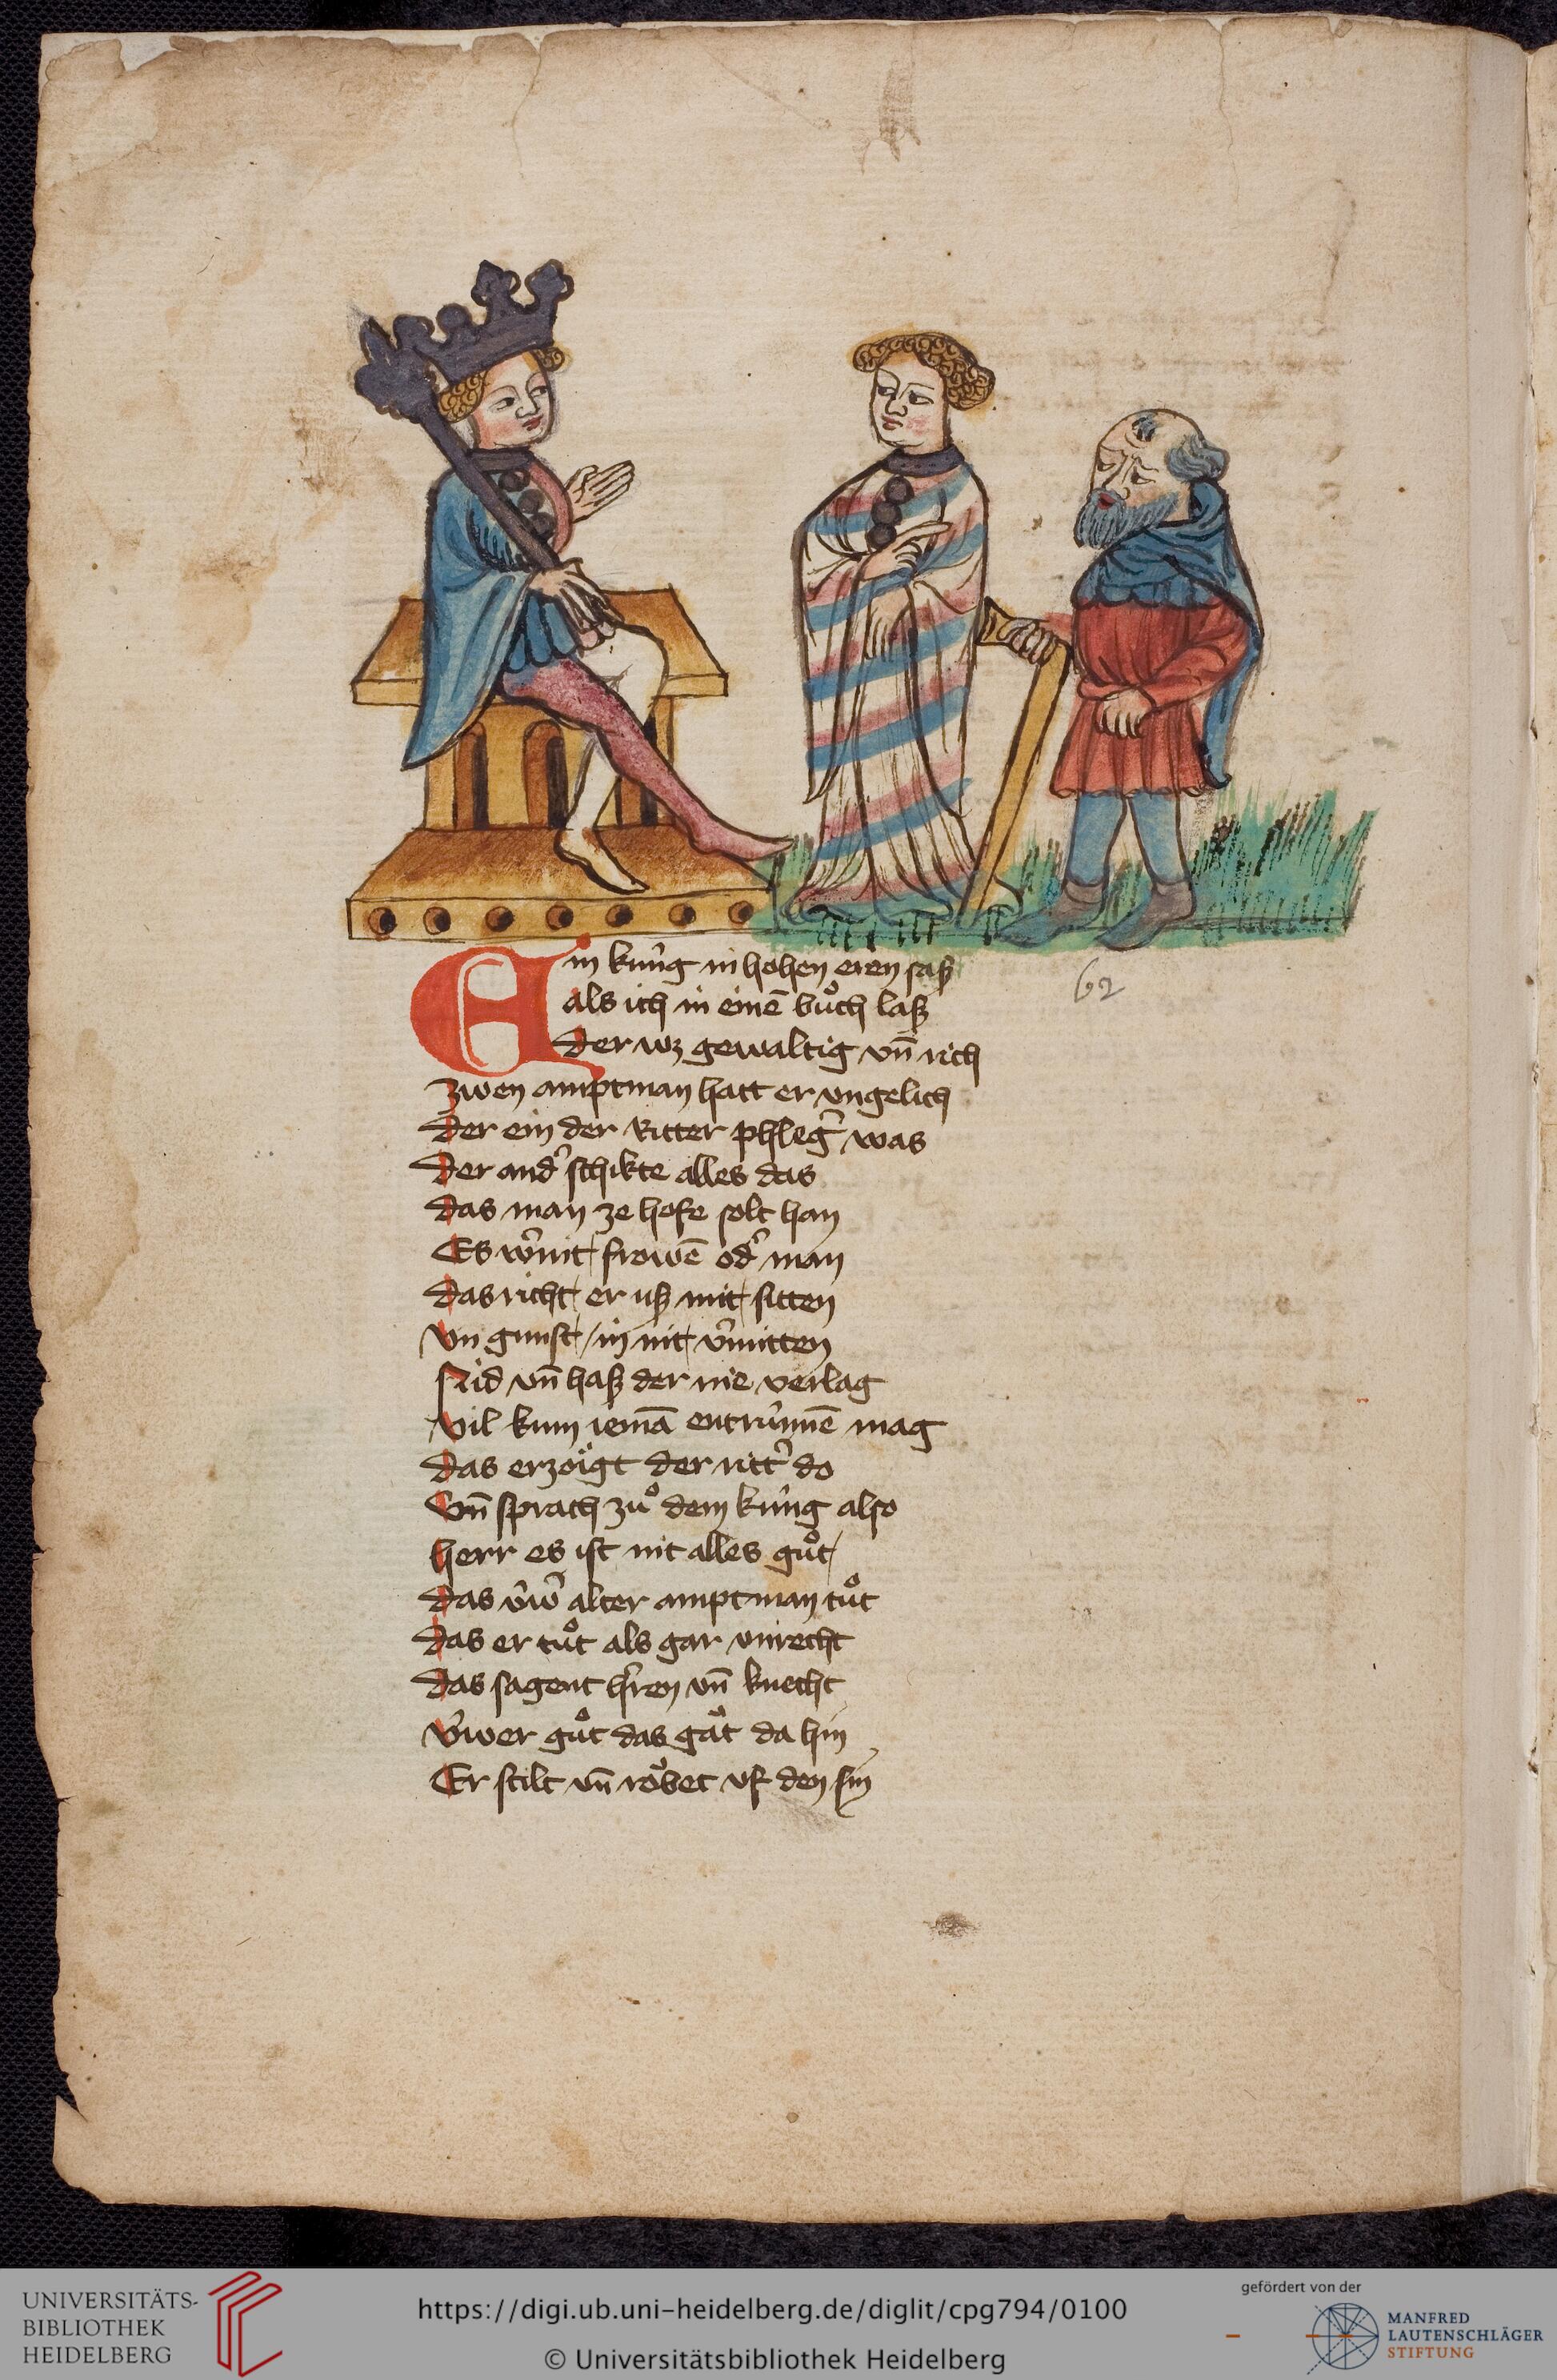 Ein kúng in hohen eren saß
als ich in einē bůch laß
der wz gewaltig vn̄ rich
zwen amptman hatt er vngelich
der ein der Ritter phleg̛ was
der and̛ schikte alles das
das man ze hofe solt han
Es w̛ mit frowē od̛ man
das richt er uß mit sitten
Vn gunst in nit v̛mitten
Nid vn̄ haß der nie verlag
vil kum iemā entrúnnē mag
das erzöigt der ritt̛ do
Vn̄ sprach zů dem kúng also
herr es ist nit alles gůt
das úw̛ alter amptman tůt
das er tůt als gar vnrecht
das sagent h̛ren vn̄ knecht
úwer gůt das gat da hin
Er stilt vn̄ röbet vf den sin
62
UNIVERSITÄTS-
BIBLIOTHEK
HEIDELBERG
https://digi.ub.uni-heidelberg.de/diglit/cpg794/0100
© Universitätsbibliothek Heidelberg
gefördert von der
MANFRED
LAUTENSCHLÄGER
STIFTUNG